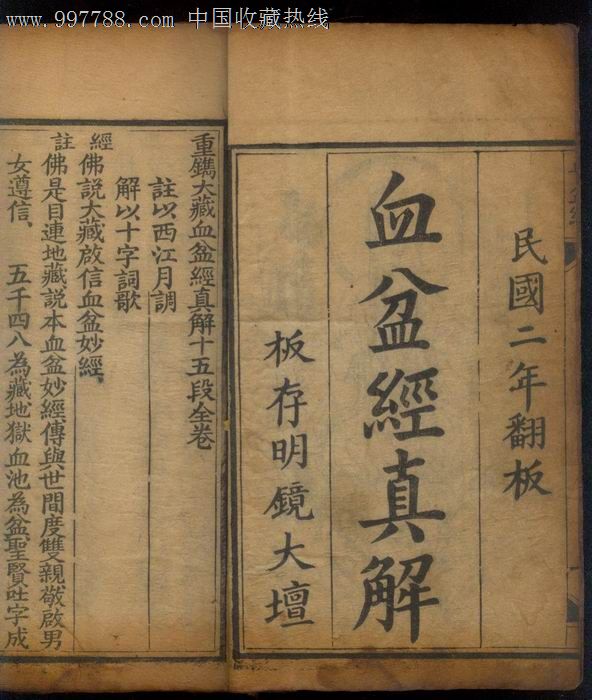 www.997788.com 中国收藏热线
民國二年翻板
血盆經真解
板存明鏡大壇
重鐫大藏血盆經真解十五段全卷
註以西江月調
解以十字詞歌
經 佛說大藏啟信血盆妙經、
註 佛是目連地藏説本血盆妙經傳與世間度雙親敬啟男
女遵信、 五千四八為藏地獄血池為盆聖賢吐字成